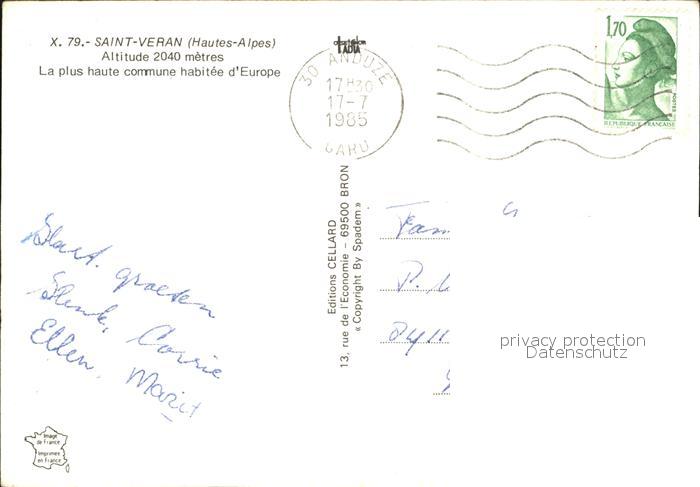 X. 79.- SAINT-VERAN (Hautes-Alpes)
Altitude 2040 mètres
La plus haute commune habitée d'Europe
30 ANDUZE
17H30
17-7
1985
GARD
1,70
POSTES
REPUBLIQUE FRANÇAISE
Editions CELLARD
13, rue de l'Economie - 69500 BRON
« Copyright By Spadem »
Hart. groeten
Henk, Corrie
Ellen, Marit
Fam
P.
privacy protection
Datenschutz
Image
de France
Imprimée
en France